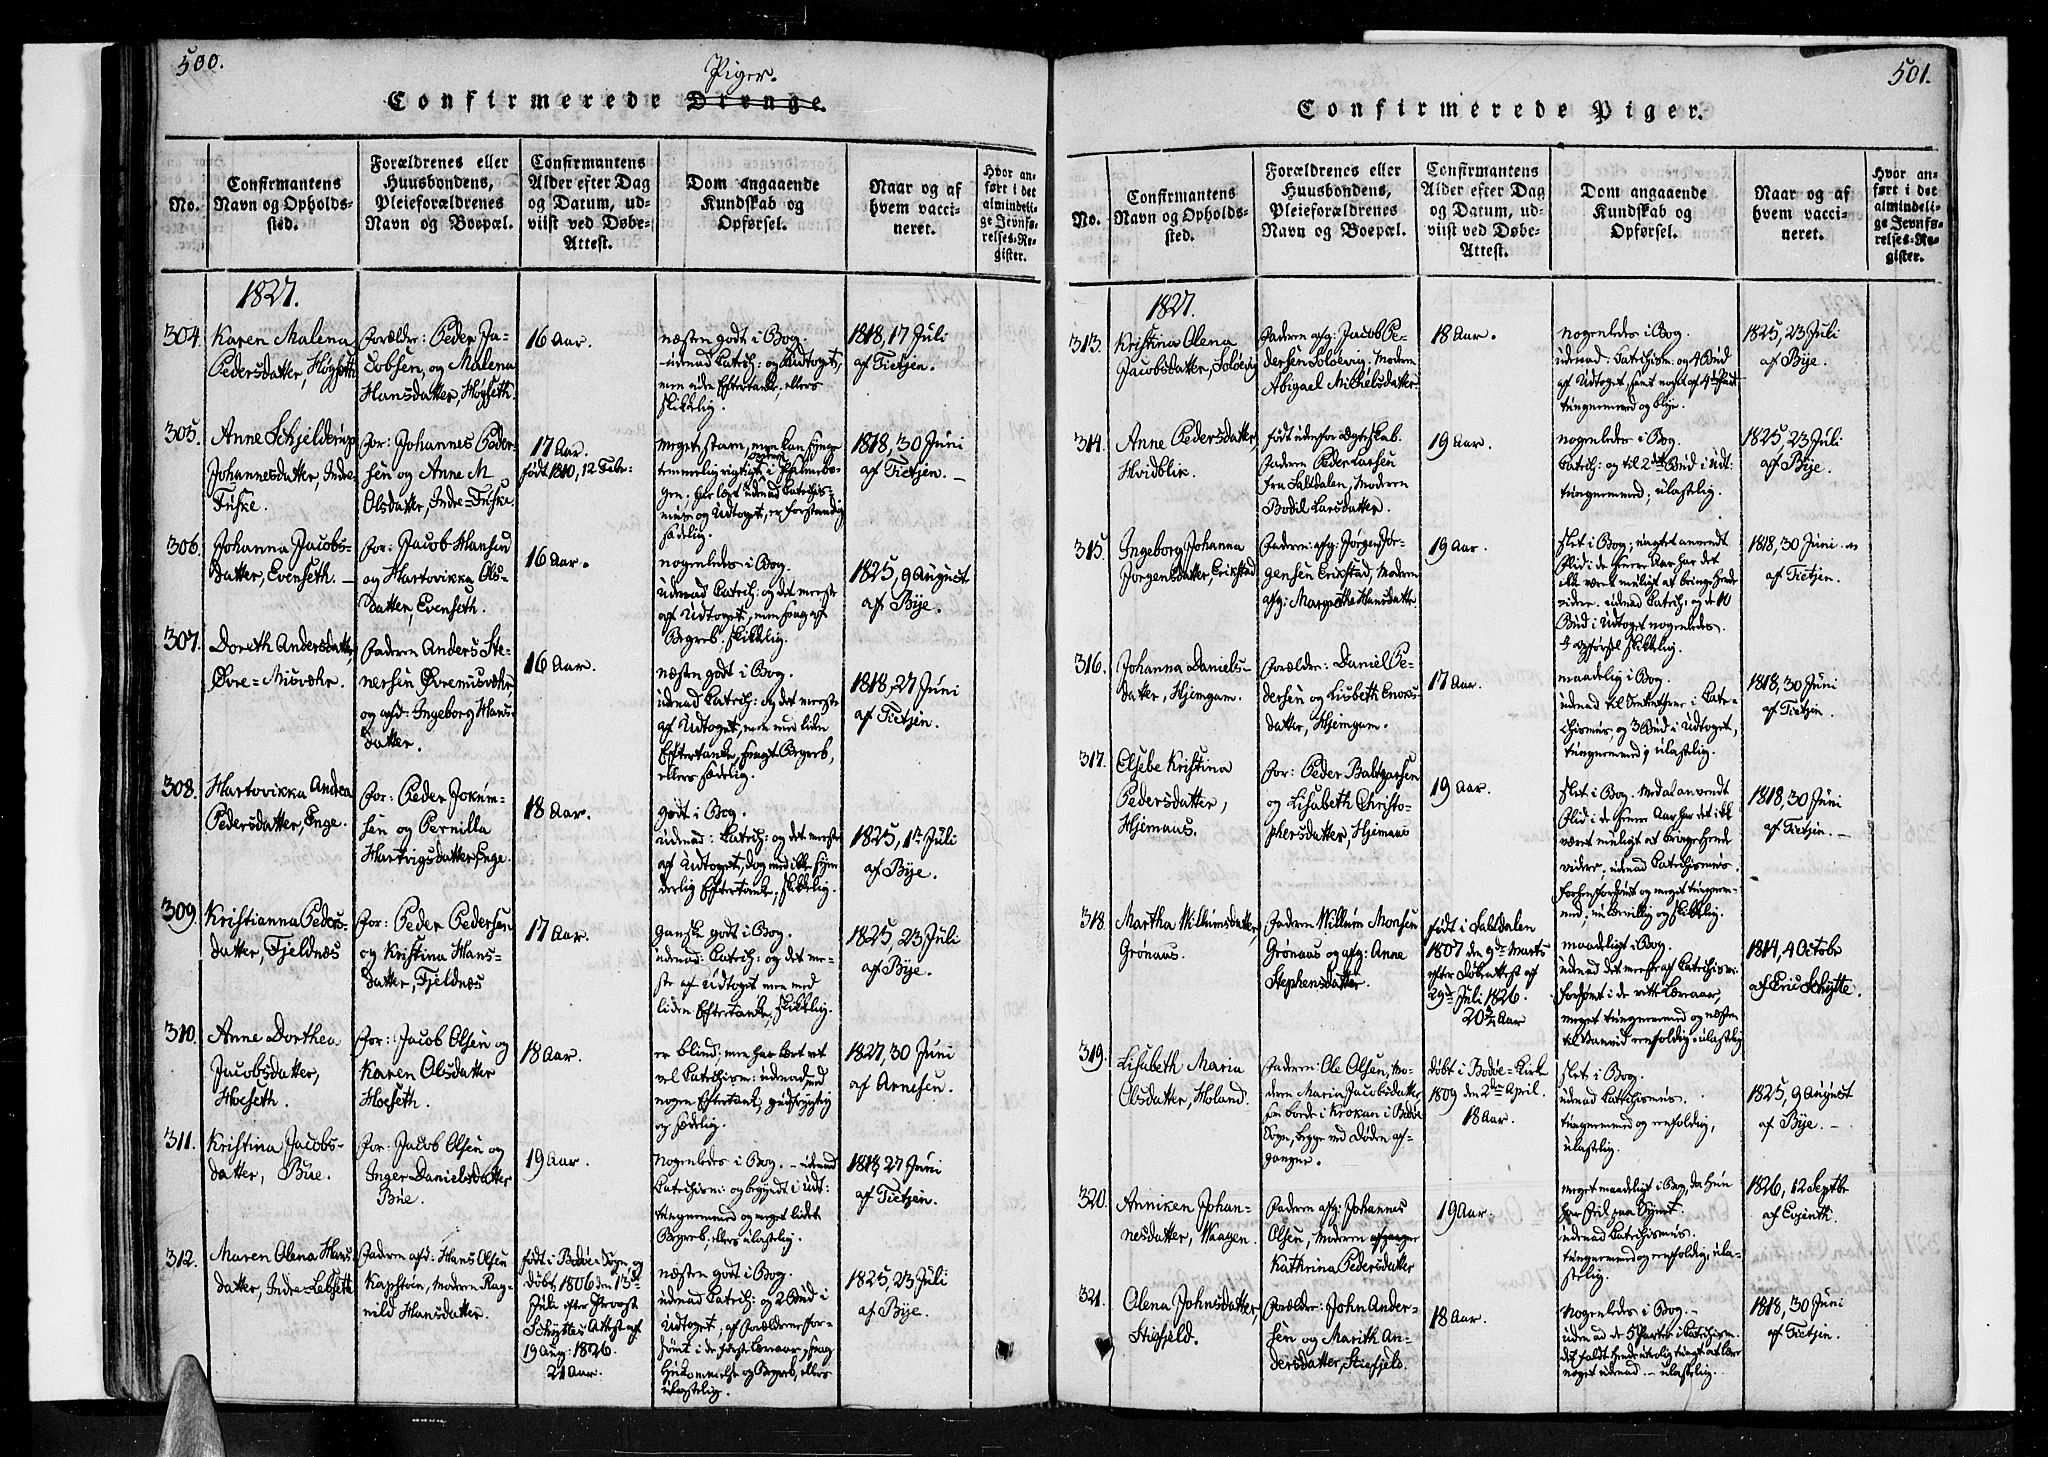 500.
Piger.
Confirmerede Drenge.
No.
Confirmantens
Navn og Opholds-
sted.
Forældrenes eller
Huusbondens,
Pleieforældrenes
Navn og Boepæl.
Confirmantens
Alder efter Dag
og Datum, ud-
viist ved Døbe-
Attest.
Dom angaaende
Kundskab og
Opførsel.
Naar og af
hvem vacci-
neret.
Hvor an-
ført i det
almindeli-
ge Jevnfø-
relses-Re-
gister.
1827.
304.
Karen Malena
Pedersdatter, Høgseth
Forældre: Peder Ja-
cobsen, og Malena
Hansdatter, Høgseth.
16 Aar.
næsten godt i Bog.
udenad Catech: og Udtoget,
men uden Eftertanke, ellers
skikkelig.
1818, 17 Juli
af Tietjen.
305.
Anne Schjelderup
Johannesdatter, Indre
Tuske.
For: Johannes Peder-
sen og Anne M
Olsdatter, Indre-Tuske.
17 Aar.
født 1810, 12 Febr:
meget stam, men kan synge
temmelig rigtigt i Psalmebo-
gen. har lært udenad Catechis-
mum og Udtoget, er forstandig
sædelig.
1818, 30 Juni
af Tietjen. –
306.
Johanna Jacobs-
datter, Evenseth. –
For: Jacob Hansen
og Hartvikka Ols-
datter, Evenseth.
16 Aar.
nogenledes i Bog.
udenad Catech: og det meeste
af Udtoget, men svag af
Begreb. skikkelig.
1825, 9 August
af Bye.
307.
Doreth Andersdatter,
Øvre-Misvæhr.
Faderen Anders Ste-
nersen Øvremisvæhr
og afd: Ingeborg Hans-
datter.
16 Aar.
næsten godt i Bog.
udenad Catech: og det meeste
af Udtoget, men med liden
Eftertanke, svagt Begreb,
ellers sædelig.
1818, 27 Juni
af Tietjen.
308.
Hartovikka Andrea
Pedersdatter, Enge.
For: Peder Jokum-
sen og Pernilla
Hartvigsdatter, Enge.
18 Aar.
godt i Bog.
udenad: Catech: og det meeste
af Udtoget, dog med ikke syn-
derlig Eftertanke, skikkelig.
1825, 1te Juli
af Bye.
309.
Kristianna Peders-
datter, Fjeldnæs
For: Peder Pedersen
og Kristina Hans-
datter, Fjeldnæs
17 Aar.
ganske godt i Bog.
udenad: Catech: og det me-
ste af Udtoget men med
liden Eftertanke, skikkelig.
1825, 23 Juli
af Bye.
310.
Anne Dorthea
Jacobsdatter,
Hoeseth.
For: Jacob Olsen og
Karen Olsdatter
Hoeseth.
18 Aar.
er blind: men har lært ret
vel Catechism: udenad med
nogen Eftertanke, gudfrygtig
og sædelig.
1827, 30 Juni
af Arnesen.
311.
Kristina Jacobs-
datter, Bue.
For: Jacob Olsen og
Inger Danielsdatter
Bue.
19 Aar.
Nogenledes i Bog. – udenad
Catechism: og begyndt i Udt:
tungnemmed og meget lidet
Begreb, ellers ulastelig.
1818, 27 Juni
af Tietjen.
312.
Maren Olena Hans-
datter, Indre-Lebseth
Faderen afd: Hans Olsen
Kapstoen, Moderen Rag-
nild Hansdatter.
født i Bodøe-Sogn, og
døbt 1806 den 13de
Juli efter Provst
Schyttes Attest af
19 Aug: 1826.
21 Aar.
næsten godt i Bog.
udenad Catech: og 2 Bud i
Udtoget, af Forældrene for-
sømt i de første Læreaar, svag
Hukommelse og Begreb, ellers
ulastelig.
1825, 23 Juli
af Bye.
501.
Confirmerede Piger.
No.
Confirmantens
Navn og Opholds-
sted.
Forældrenes eller
Huusbondens,
Pleieforældrenes
Navn og Boepæl.
Confirmantens
Alder efter Dag
og Datum, ud-
viist ved Døbe-
Attest.
Dom angaaende
Kundskab og
Opførsel.
Naar og af
hvem vacci-
neret.
Hvor an-
ført i det
almindeli-
ge Jevnfø-
relses-Re-
gister.
1827.
313.
Kristina Olena
Jacobsdatter, Soløevig
Faderen afg: Jacob Pe-
dersen Soløevig, Modern
Abigael Mikkelsdatter
18 Aar.
nogenledes i Bog.
udenad: Catechism: og 4 Bud
af Udtoget, samt noget af 4de Part
tungnemmed og blye.
1825, 23 Juli
af Bye.
314.
Anne Pedersdatter,
Hvidblik.
født udenfor Ægteskab.
Faderen Peder Larsen
fra Saltdalen, Moderen
Bodil Larsdatter.
19 Aar.
nogenledes i Bog.
Catech: og til 2det Bud i Udt:
tungnemmed; ulastelig.
1825, 23 Juli
af Bye.
315.
Ingeborg Johanna
Jørgensdatter, Erikstad
Faderen: afg: Jørgen Jør-
gensen Erikstad, Moderen
afg: Margrethe Hansdatter
19 Aar.
slet i Bog; uagtet anvendt
Flid i de senere Aar har det
ikke været muligt at bringe hende
videre. udenad Catech: og de 10
Bud i Udtoget nogenledes.
Opførsel skikkelig.
1818, 30 Juni
af Tietjen.
316.
Johanna Daniels-
datter, Hjemgam.
Forældre: Daniel Pe-
dersen og Lisbeth Enoks-
datter, Hjemgam.
17 Aar.
maadelig i Bog.
udenad til Skriftemaalet i Cate-
chismus, og 3 Bud i Udtoget,
tungnemmed; ulastelig.
1818, 30 Juni
af Tietjen.
317.
Elsebe Kristina
Pedersdatter,
Hjemaas.
For: Peder Baltzarsen
og Lisabeth Christo-
phersdatter, Hjemaas
19 Aar.
slet i Bog. Med al anvendt
Flid i de senere Aar har det ikke
været muligt at bringe hende
videre; udenad Catechismus.
Forhen forsømt og meget tungnem-
med; skikkelig.
1818, 30 Juni
af Tietjen. –
318.
Martha Willumsdatter,
Grønaas.
Faderen Willum Monsen
Grønaas og afg: Anne
Stephensdatter.
født i Saltdalen
1807 den 9de Marts
efter Døbeattest af
29de Juli 1826.
20¼ Aar
maadeligt i Bog.
udenad det meeste af Catechism:
forsømt i de rette Læreaar,
meget tungnemmed og næsten
til Vanvid eenfoldig. ulastelig
1814, 4 Octobr
af Eric Schytte.
319.
Lisabeth Maria
Olsdatter, Holand.
Faderen: Ole Olsen, Mo-
deren Maria Jacobsdatter
før boede i Krokan i Bodøe
Sogn, begge ved Døden af-
gangne.
døbt i Bodøe-Kirk
1809 den 2den April.
18 Aar.
slet i Bog.
udenad Catechismus.
tungnemmed og eenfoldig,
ulastelig.
1825, 9 August
af Bye. –
320.
Anniken Johan-
nesdatter, Waagen.
Faderen afg: Johannes
Olsen, Moderen afgangen
Kathrina Pedersdatter
19 Aar.
meget maadeligt i Bog, da hun
har Feil paa Synet.
udenad Catechismus.
tungnemmed og eenfoldig, ula-
stelig.
1826, 12 Septbr
af Evjenth.
321.
Olena Johnsdatter,
Stigfjeld.
Forældre: John Ander-
sen og Marith An-
dersdatter, Stiefjeld.
18 Aar.
Nogenledes i Bog. –
udenad de 5 Parter i Catechism.
det faldt hende utrolig tungt at lære
noget udenad. – ulastelig.
1818, 30 Juni
af Tietjen.